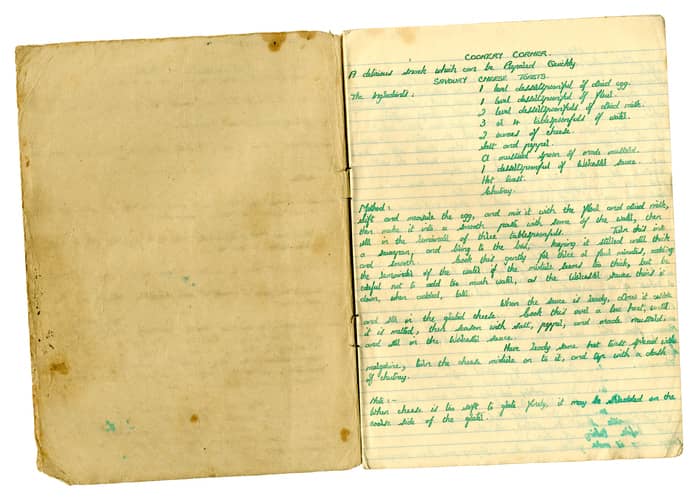 COOKERY CORNER.
A delicious snack which can be Prepared Quickly.
SAVOURY CHEESE TOASTS.
The Ingredients: 1 level dessertspoonful of dried egg.
1 level dessertspoonful of flour.
2 level dessertspoonfuls of dried milk.
3 or 4 tablespoonfuls of water.
2 ounces of cheese.
Salt and pepper.
A mustard spoon of made mustard.
1 dessertspoonful of Worcester sauce.
Hot toast.
Chutney.
Method:
Sift and measure the egg, and mix it with the flour and dried milk,
then make it into a smooth paste with some of the water, then
stir in the remainder of three tablespoonfuls. Turn this into
a saucepan, and bring to the boil, keeping it stirred until thick
and smooth. Cook this gently for three or four minutes, adding
the remainder of the water if the mixture seems too thick, but be
careful not to add too much water, as the Worcester sauce thins it
down, when added, too.
When the sauce is ready, draw it aside
and stir in the grated cheese. Cook this over a low heat, until
it is melted, then season with salt, pepper, and made mustard,
and stir in the Worcester sauce.
Have ready some hot toast spread with
margarine, turn the cheese mixture on to it, and top with a dash
of chutney.
Note:-
When cheese is too soft to grate finely, it may be shredded on the
coarse side of the grater.